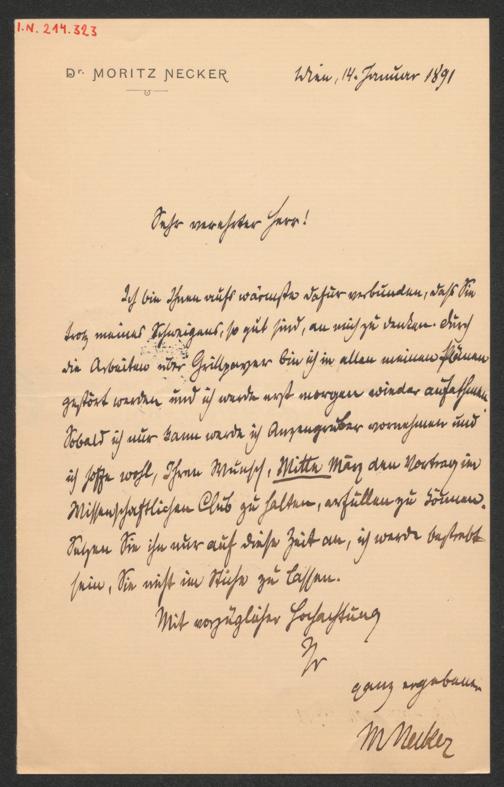 I.N. 214.323
Dr. MORITZ NECKER
Wien, 14. Januar 1891
Sehr verehrter Herr!
Ich bin Ihnen aufs wärmste dafür verbunden, daß Sie
trotz meines Schweigens, so gut sind, an mich zu denken. Durch
die Arbeiten über Grillparzer bin ich in allen meinen Plänen
gestört worden und ich werde erst morgen wieder aufathmen.
Sobald ich nur kann werde ich Anzengruber vornehmen und
ich hoffe wohl, Ihren Wunsch, Mitte März den Vortrag im
Wissenschaftlichen Club zu halten, erfüllen zu können.
Setzen Sie ihn nur auf diese Zeit an, ich werde bestrebt
sein, Sie nicht im Stiche zu lassen.
Mit vorzüglicher Hochachtung
Ihr
ganz ergebener
M Necker